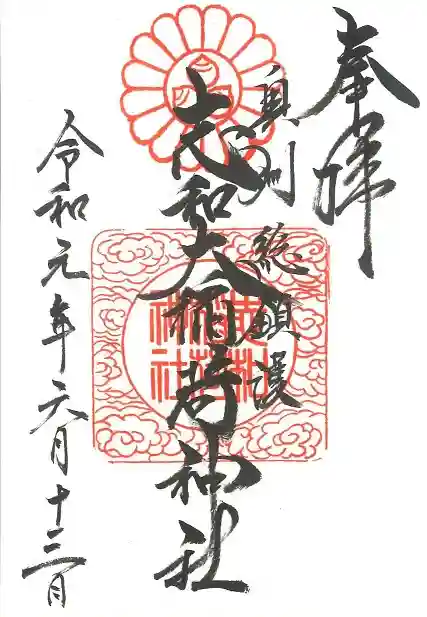 奉拝
奥州総鎮護
志和大稲荷神社
志和
稲荷
神社
令和元年六月十三日